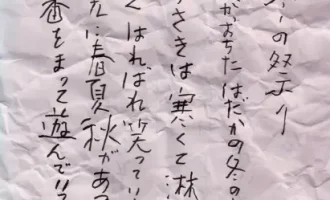 の祭り
がおちたはだかの冬の
さきは寒くて淋
くはればれ笑ってい
に春夏秋があ
番をまって遊んでい